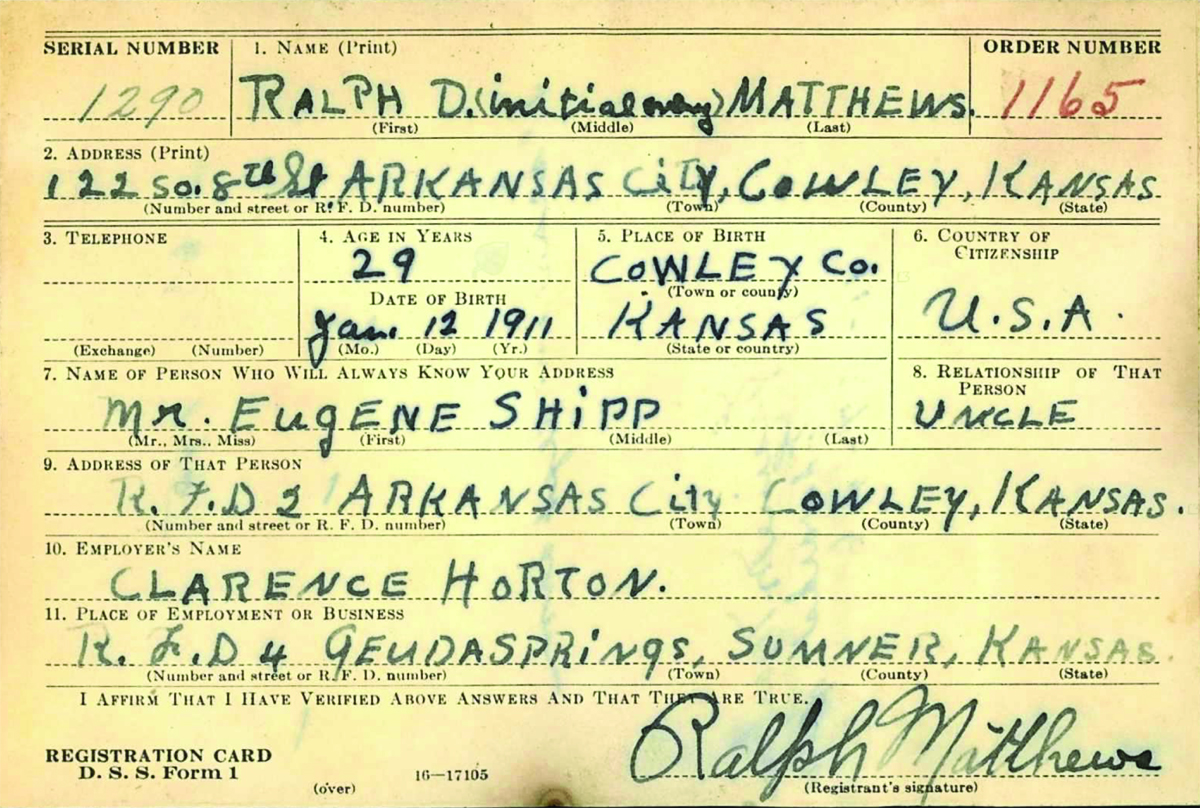 SERIAL NUMBER 1. NAME (Print) ORDER NUMBER
1290 RALPH D. (initial only) MATTHEWS. 1165
(First) (Middle) (Last)
2. ADDRESS (Print)
122 So. 8th St ARKANSAS CiTY, COWLEY, KANSAS
(Number and street or R. F. D. number) (Town) (County) (State)
3. TELEPHONE 4. AGE IN YEARS 5. PLACE OF BIRTH 6. COUNTRY OF CITIZENSHIP
29 COWLEY Co.
DATE OF BIRTH (Town or county)
Jan. 12 1911 KANSAS U.S.A.
(Exchange) (Number) (Mo.) (Day) (Yr.) (State or country)
7. NAME OF PERSON WHO WILL ALWAYS KNOW YOUR ADDRESS 8. RELATIONSHIP OF THAT PERSON
Mr. EUgENE SHiPP UNCLE
(Mr., Mrs., Miss) (First) (Middle) (Last)
9. ADDRESS OF THAT PERSON
R. F. D 2 ARKANSAS City COWLEY, KANSAS.
(Number and street or R. F. D. number) (Town) (County) (State)
10. EMPLOYER'S NAME
CLARENCE HORTON.
11. PLACE OF EMPLOYMENT OR BUSINESS
R. F. D 4 GEUDASPRiNgS, SUMNER, KANSAS.
(Number and street or R. F. D. number) (Town) (County) (State)
I AFFIRM THAT I HAVE VERIFIED ABOVE ANSWERS AND THAT THEY ARE TRUE.
Ralph Matthews
REGISTRATION CARD
D. S. S. Form 1 (over) 16—17105 (Registrant's signature)